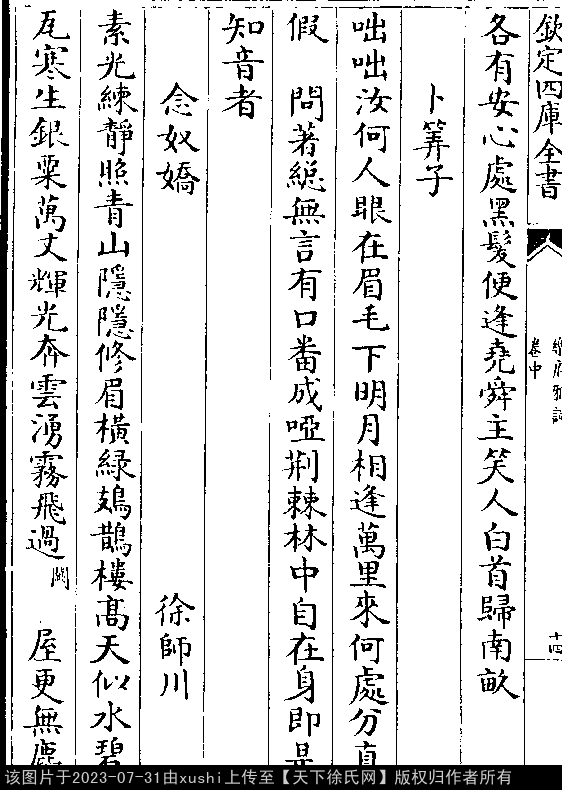 欽定四庫全書
樂府雅詞
卷中
十四
各有安心處黑髮便逢堯舜主笑人白首歸南畝
卜筭子
咄咄汝何人眼在眉毛下明月相逢萬里來何處分真
假 問著總無言有口畨成啞荆棘林中自在身即是
知音者
念奴嬌 徐師川
素光練靜照青山隱隱修眉橫緑鳷鵲樓髙天似水碧
瓦寒生銀粟萬丈輝光奔雲湧霧飛過闕 屋更無塵
该图片于2023-07-31由xushi上传至【天下徐氏网】版权归作者所有